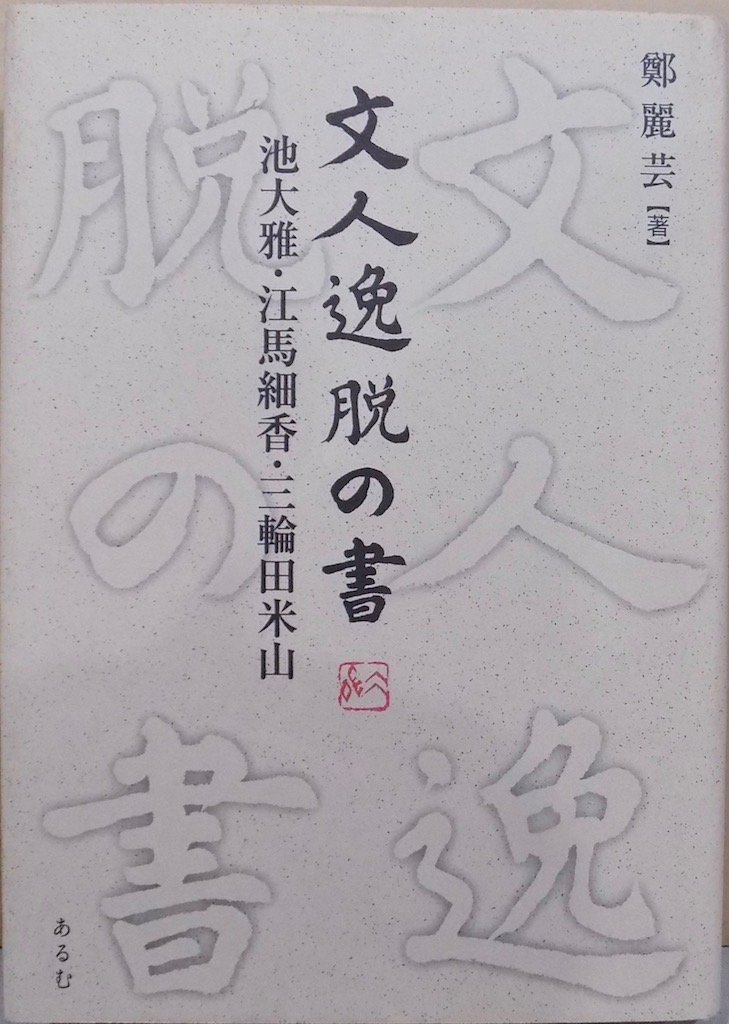 鄭麗芸【著】
文人逸脱の書
池大雅・江馬細香・三輪田米山
文人逸
脱の書
あるむ